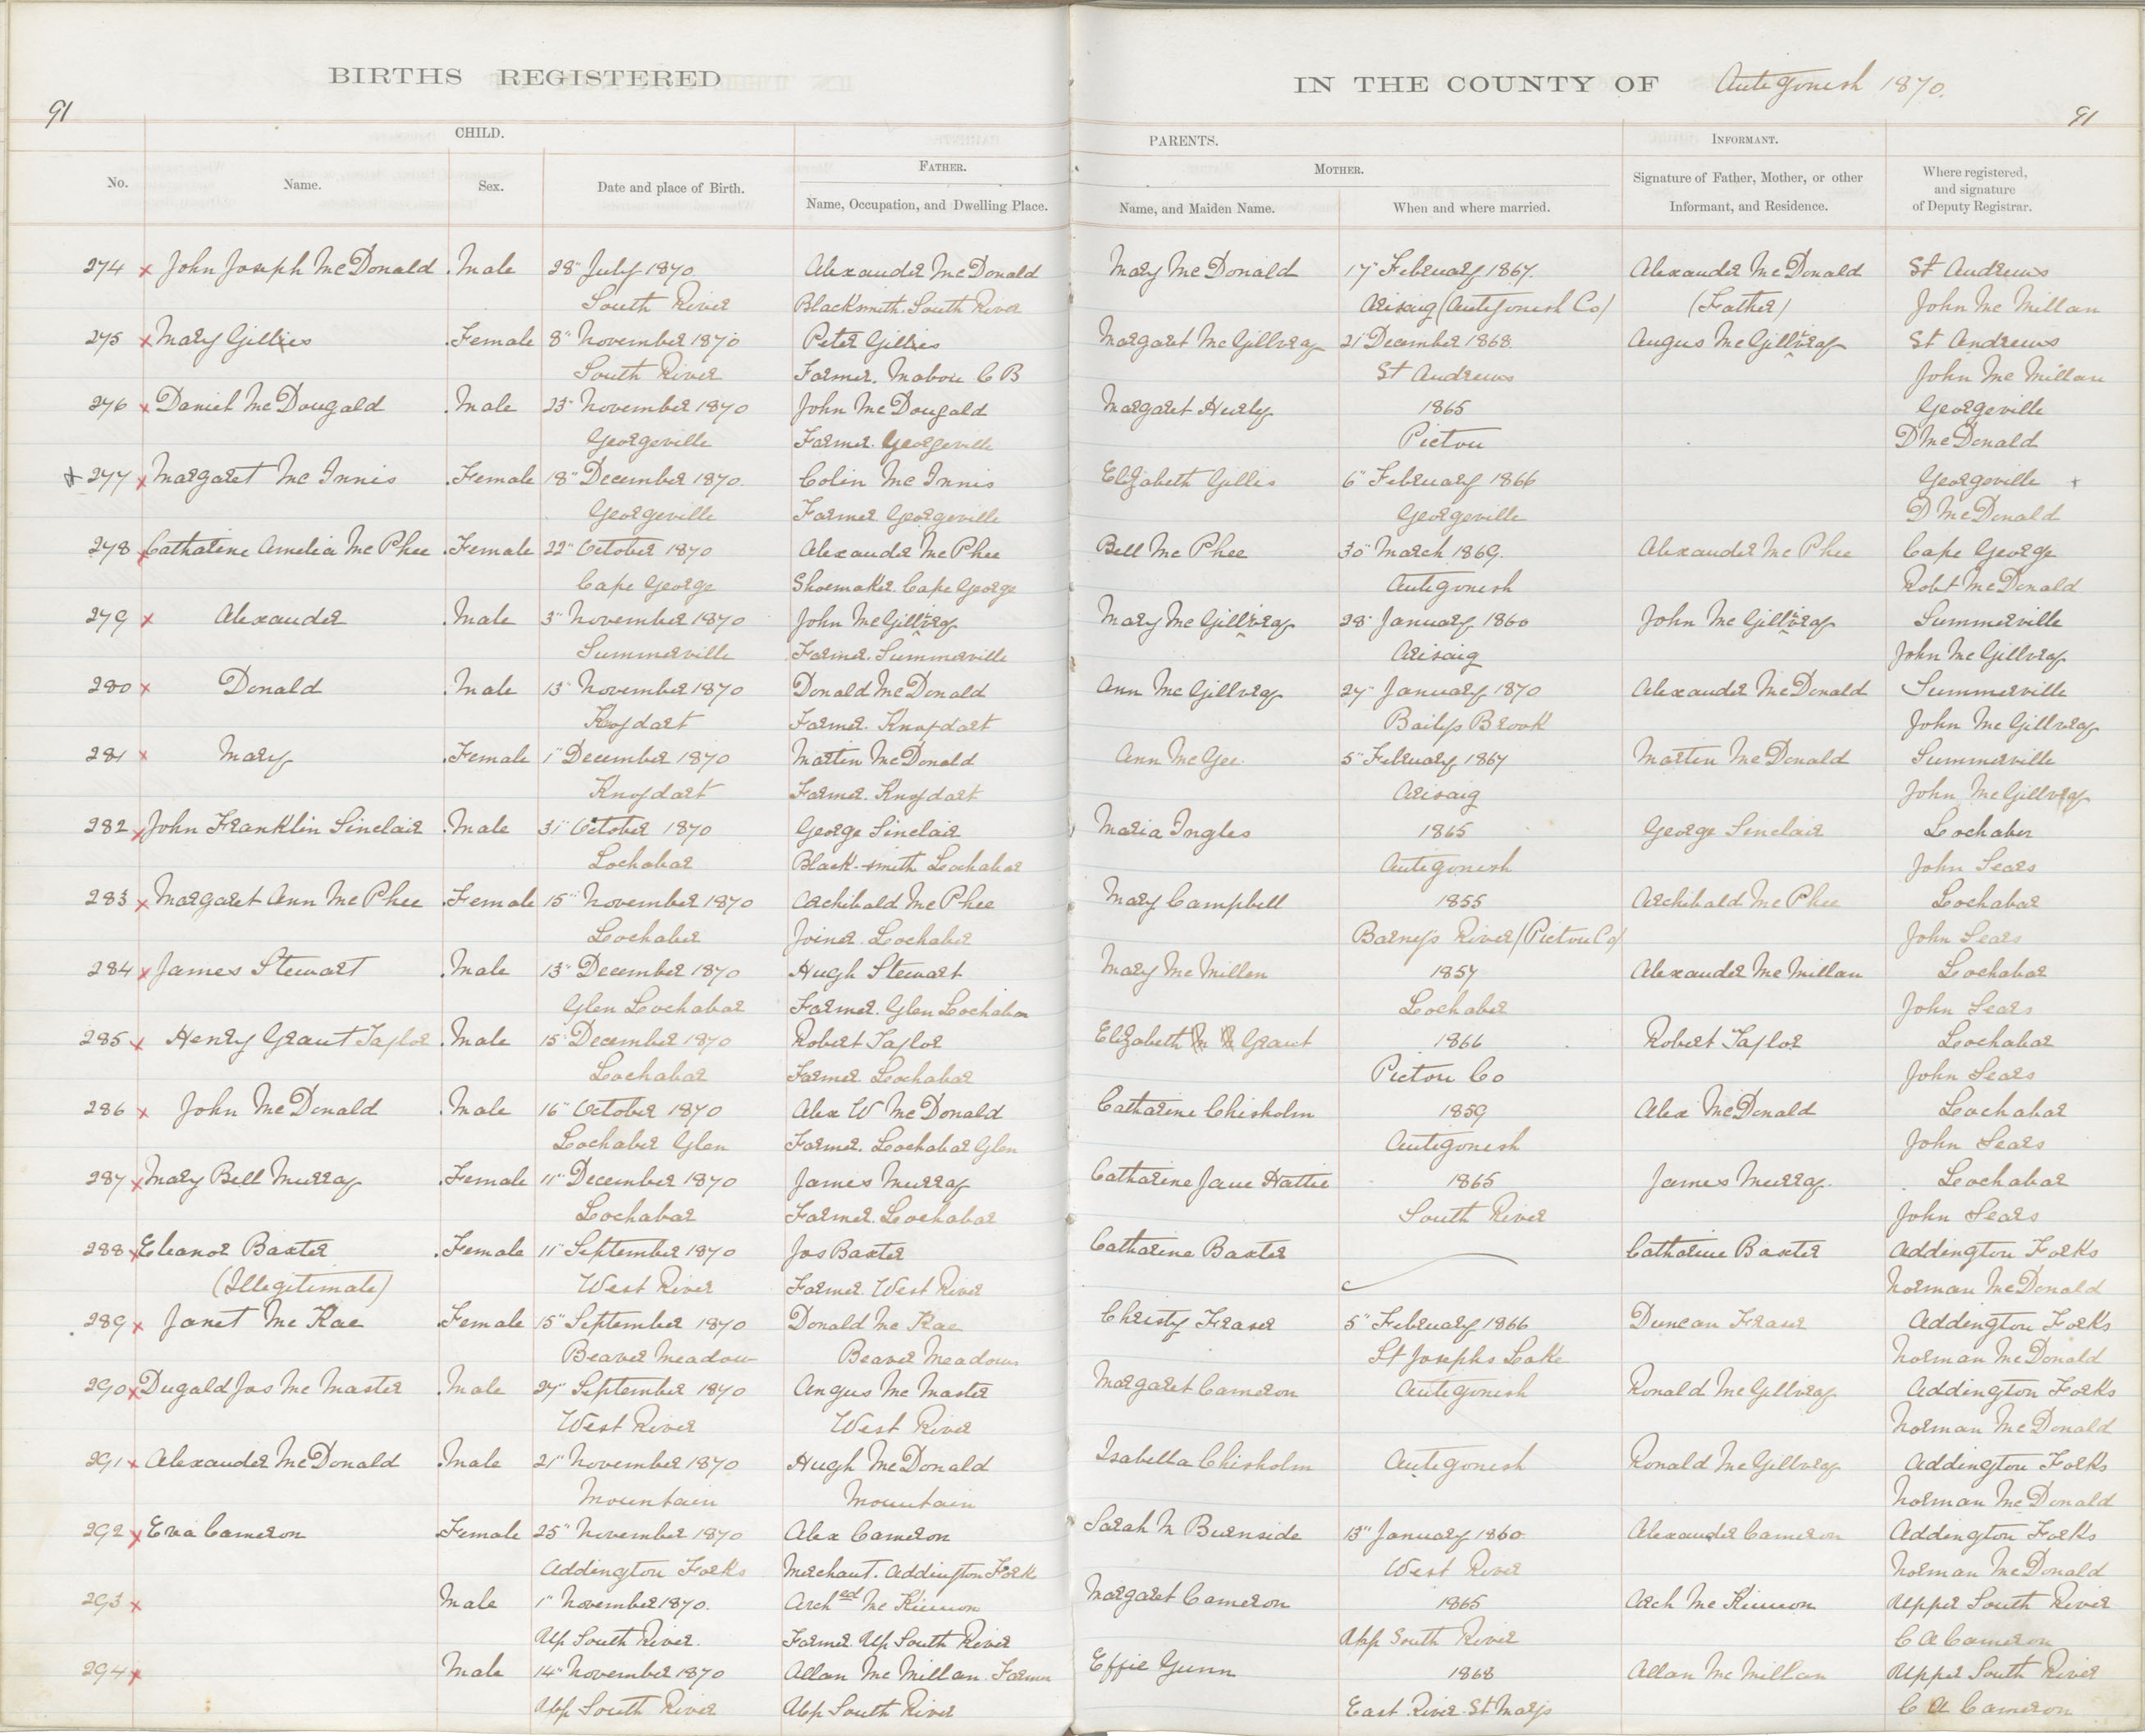 BIRTHS REGISTERED IN THE COUNTY OF Antigonish 1870.
91 91
CHILD. PARENTS. INFORMANT.
No. Name. Sex. Date and place of Birth. FATHER. Name, Occupation, and Dwelling Place. MOTHER. Name, and Maiden Name. When and where married. Signature of Father, Mother, or other Informant, and Residence. Where registered, and signature of Deputy Registrar.
274 x John Joseph McDonald Male 28" July 1870 Alexander McDonald Mary McDonald 17" February 1867 Alexander McDonald St Andrews
South River Blacksmith. South River Arisaig (Antigonish Co) (Father) John McMillan
275 x Mary Gillies Female 8" November 1870 Peter Gillies Margaret McGillvray 21" December 1868 Angus McGillivray St Andrews
South River Farmer. Mabou C B St Andrews John McMillan
276 x Daniel McDougald Male 23" November 1870 John McDougald Margaret Hurly 1865 Georgeville
Georgeville Farmer. Georgeville Pictou D McDonald
x 277 x Margaret McInnis Female 18" December 1870. Colin McInnis Elizabeth Gillis 6" February 1866 Georgeville x
Georgeville Farmer. Georgeville Georgeville D McDonald
278 x Catharine Amelia McPhee Female 22" October 1870 Alexander McPhee Bell McPhee 30" March 1869. Alexander McPhee Cape George
Cape George Shoemaker. Cape George Antigonish Robt McDonald
279 x Alexander Male 3" November 1870 John McGillivray Mary McGillivray 28" January 1860 John McGillivray Summerville
Summerville Farmer. Summerville Arisaig John McGillvray
280 x Donald Male 13" November 1870 Donald McDonald Ann McGillvray 27" January 1870 Alexander McDonald Summerville
Knoydart Farmer. Knoydart Bailys Brook John McGillvray
281 x Mary Female 1" December 1870 Martin McDonald Ann McGee. 5" February 1867 Martin McDonald Summerville
Knoydart Farmer. Knoydart Arisaig John McGillvray
282 x John Franklin Sinclair Male 31" October 1870 George Sinclair Maria Ingles 1865 George Sinclair Lochaber
Lochabar Black-smith Lochabar Antigonish John Sears
283 x Margaret Ann McPhee Female 15" November 1870 Archibald McPhee Mary Campbell 1855 Archibald McPhee Lochabar
Lochaber Joiner. Lochaber Barneys River (Pictou Co) John Sears
284 x James Stewart Male 13" December 1870 Hugh Stewart Mary McMillen 1857 Alexander McMillan Lochabar
Glen Lochabar Farmer. Glen Lochabar Lochaber John Sears
285 x Henry Grant Taylor Male 15" December 1870 Robert Taylor Elizabeth Grant 1866 Robert Taylor Lochabar
Lochabar Farmer Lochabar Pictou Co John Sears
286 x John McDonald Male 16" October 1870 Alex W McDonald Catharine Chisholm 1859 Alex McDonald Lochabar
Lochaber Glen Farmer. Lochabar Glen Antigonish John Sears
287 x Mary Bell Murray Female 11" December 1870 James Murray Catharine Jane Hattie 1865 James Murray. Lochabar
Lochabar Farmer. Lochabar South River John Sears
288 x Eleanor Baxter Female 11" September 1870 Jas Baxter Catharine Baxter Catharine Baxter Addington Forks
(Illegitimate) West River Farmer. West River Norman McDonald
289 x Janet McRae Female 15" September 1870 Donald McRae Christy Fraser 5" February 1866 Duncan Fraser Addington Forks
Beaver Meadow Beaver Meadow St Josephs Lake Norman McDonald
290 x Dugald Jas McMaster Male 27" September 1870 Angus McMaster Margaret Cameron Antigonish Ronald McGillvray Addington Forks
West River West River Norman McDonald
291 x Alexander McDonald Male 21" November 1870 Hugh McDonald Isabella Chisholm Antigonish Ronald McGillvray Addington Forks
Mountain Mountain Norman McDonald
292 x Eva Cameron Female 25" November 1870 Alex Cameron Sarah M Burnside 13" January 1860 Alexander Cameron Addington Forks
Addington Forks Merchant. Addington Fork West River Norman McDonald
293 x Male 1" November 1870. Arched McKinnon Margaret Cameron 1865 Arch McKinnon Upper South River
Up South River. Farmer Up South River Upp South River C A Cameron
294 x Male 14" November 1870 Allan McMillan. Farmer Effie Gunn 1868 Allan McMillan Upper South River
Upp South River Upp South River East River St Marys C A Cameron